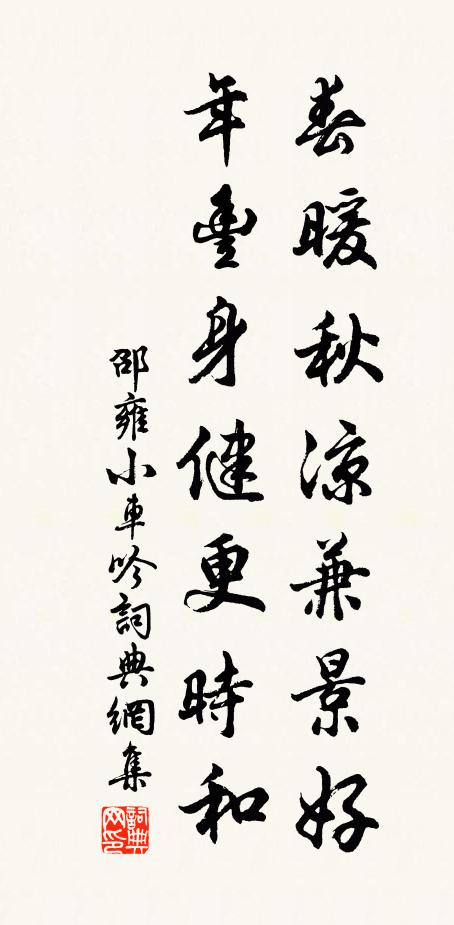 春暖秋涼兼景好
年豊身健更時和
邵雍小車吟詞典網集
詞典網印